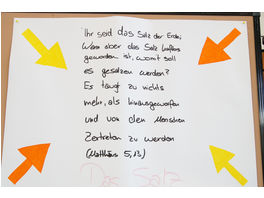 Ihr seid das Salz der Erde;
Wenn aber das Salz kraftlos
geworden ist, womit soll
es gesalzen werden?
Es taugt zu nichts
mehr, als hinausgeworfen
und von den Menschen
zertreten zu werden
(Matthäus 5,13)
Das Salz